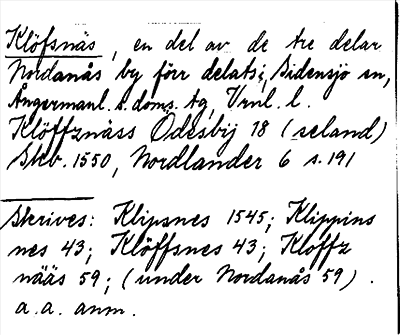 Klöfsnäs, en del av de tre delar
Nordanås by förr delats i, Sidensjö sn,
Ångermanl. s. doms. tg, Vrnl. l.
Klöffznäss Ödesbÿ 18 (seland)
Skb. 1550, Nordlander 6 s. 191
Skrives: Klipsnes 1545; Klippins
nes 43; Klöffsnes 43; Kloffz
nääs 59; (under Nordanås 59).
a. a. anm.